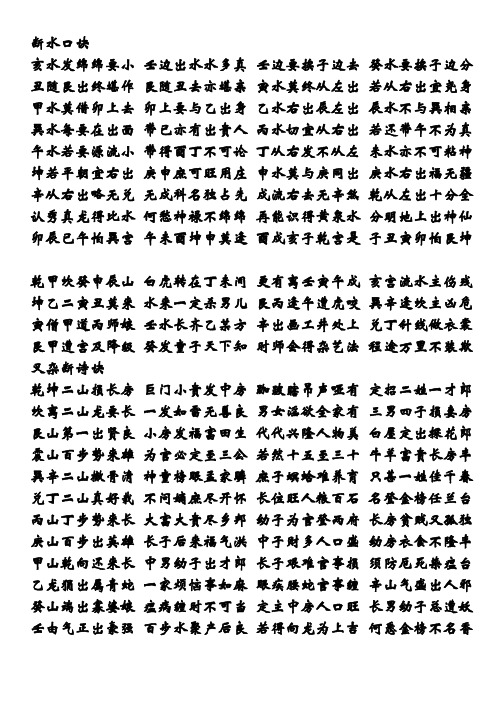 断水口诀
亥水发绵绵要小 壬边出水水多真 壬边要挨子边去 癸水要挨子边分
丑随艮出终堪作 艮随丑去亦堪亲 寅水莫终从左出 若从右出宜尧身
甲水莫借卯上去 卯上要与乙出身 乙水右出辰左出 辰水不与巽相亲
巽水每要在出面 带巳亦有出贵人 丙水切宜从右出 若还带午不为真
午水若要源流小 带得丽丁不可论 丁从右发不从左 未水亦不可粘神
坤若平朝宜右出 庚申庶可旺用庄 申水莫与庚同出 庚水右出福无疆
辛从右出略无兑 无戌科名独占先 戌流右去无辛煞 乾从左出十分全
认秀真龙得此水 何愁神禄不绵绵 再能识得黄泉水 分明地上出神仙
卯辰巳午怕巽宫 午未酉坤申莫逢 酉戌亥子乾宫是 子丑寅卯怕艮坤
乾甲坎癸申辰山 白虎转在丁未间 更有离壬寅午戌 亥宫流水主伤残
坤乙二宫丑莫来 水来一定杀男儿 艮丙逢午遭虎咬 巽辛逢坎主凶危
寅僧甲道丙师娘 壬水长齐乙某方 辛出画工井处上 兑丁针线做衣裳
艮甲遭宫及降级 癸发童子天下知 对师会得杂艺法 程途万里不装欺
又杂断诗诀
乾坤二山损长房 巨门小贵发中房 跏跛瞎吊声哑有 定招二姓一才郎
坎离二山龙要长 一发如雷无善良 男女淫欲全家有 三男四子损妻房
艮山第一出贤良 小房发福富田生 代代兴隆人物美 白屋定出探花郎
震山百步势来雄 为官必定至三公 若然十五至三十 牛羊富贵长房丰
巽辛二山撒骨清 神童榜眼孟家骋 庶子螟蛉难养育 只善一姓住千春
兑丁二山真好我 不问嫡庶尽开怀 长位旺人粮百石 名登金榜任兰台
丙山丁步势来长 大富大贵尽乡邦 幼子为官登两府 长房贫贱又孤独
庚山百步出英雄 长子后来福气洪 中子财多人口盛 幼房衣食不隆丰
甲山乾向还来长 中男幼子出才郎 长子艰难官事损 须防厄死染瘟台
乙龙狷出属青蛇 一家烦恼事如麻 眼疾腰蛇官事缠 辛山气盛出人邪
癸山端出寡婆娘 症病缠时不可当 定主中房人口旺 长男幼子忌遭妖
壬由气正出豪强 百步水聚产后良 若得向龙为上吉 何愁金榜不名香